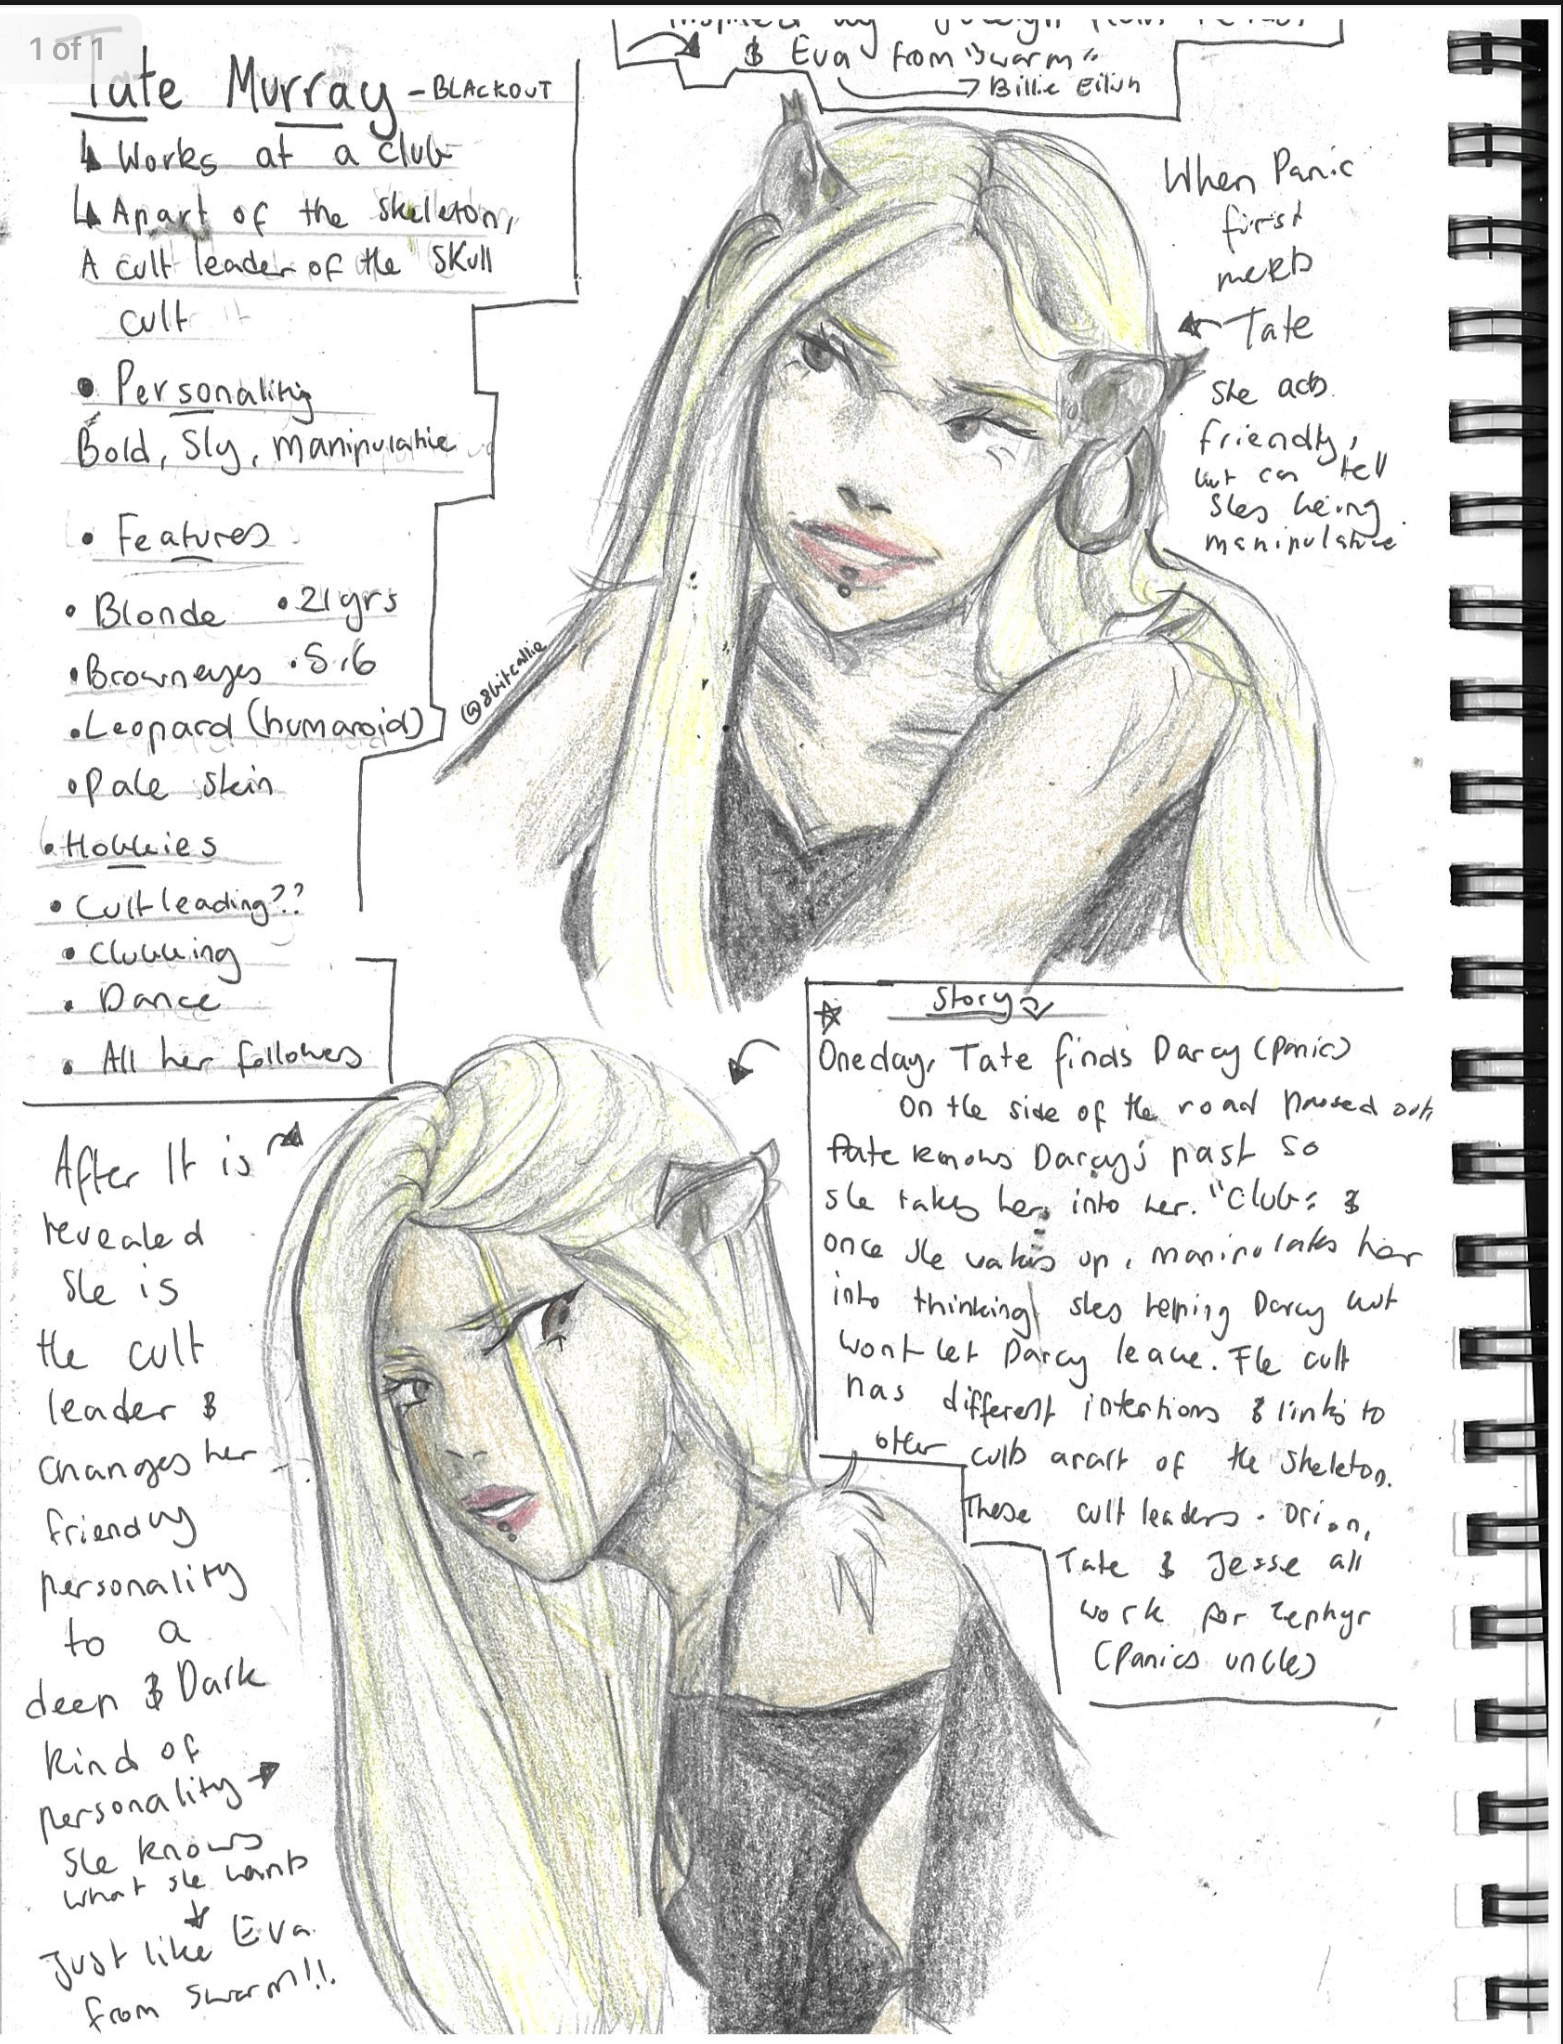 1 of 1
Tate Murray - BLACKOUT
Works at a club
Apart of the skeleton,
A cult leader of the Skull
cult
• Personality
Bold, Sly, manipulative
• Features
• Blonde • 21yrs
• Brown eyes • 5'6
• Leopard (humanoid)
• Pale skin
• Hobbies
• Cult leading??
• Clubbing
• Dance
• All her followers
& Eva from "Swarm"
Billie Eilish
When Panic
first
meets
Tate
She acts
friendly,
but can tell
Shes being
manipulative
@8bitcallie
Story
One day, Tate finds Darcy (Panic)
on the side of the road passed out
Tate knows Darcy's past so
she takes her into her "club" &
once she wakes up, manipulates her
into thinking shes helping Darcy but
wont let Darcy leave. The cult
has different intentions & links to
other cults apart of the skeleton.
These cult leaders - Orion,
Tate & Jesse all
work for Zephyr
(Panics uncle)
After It is
revealed
She is
the cult
leader &
changes her
friendly
personality
to a
deep & Dark
kind of
personality
She knows
what she wants
Just like Eva
from Swarm!!.